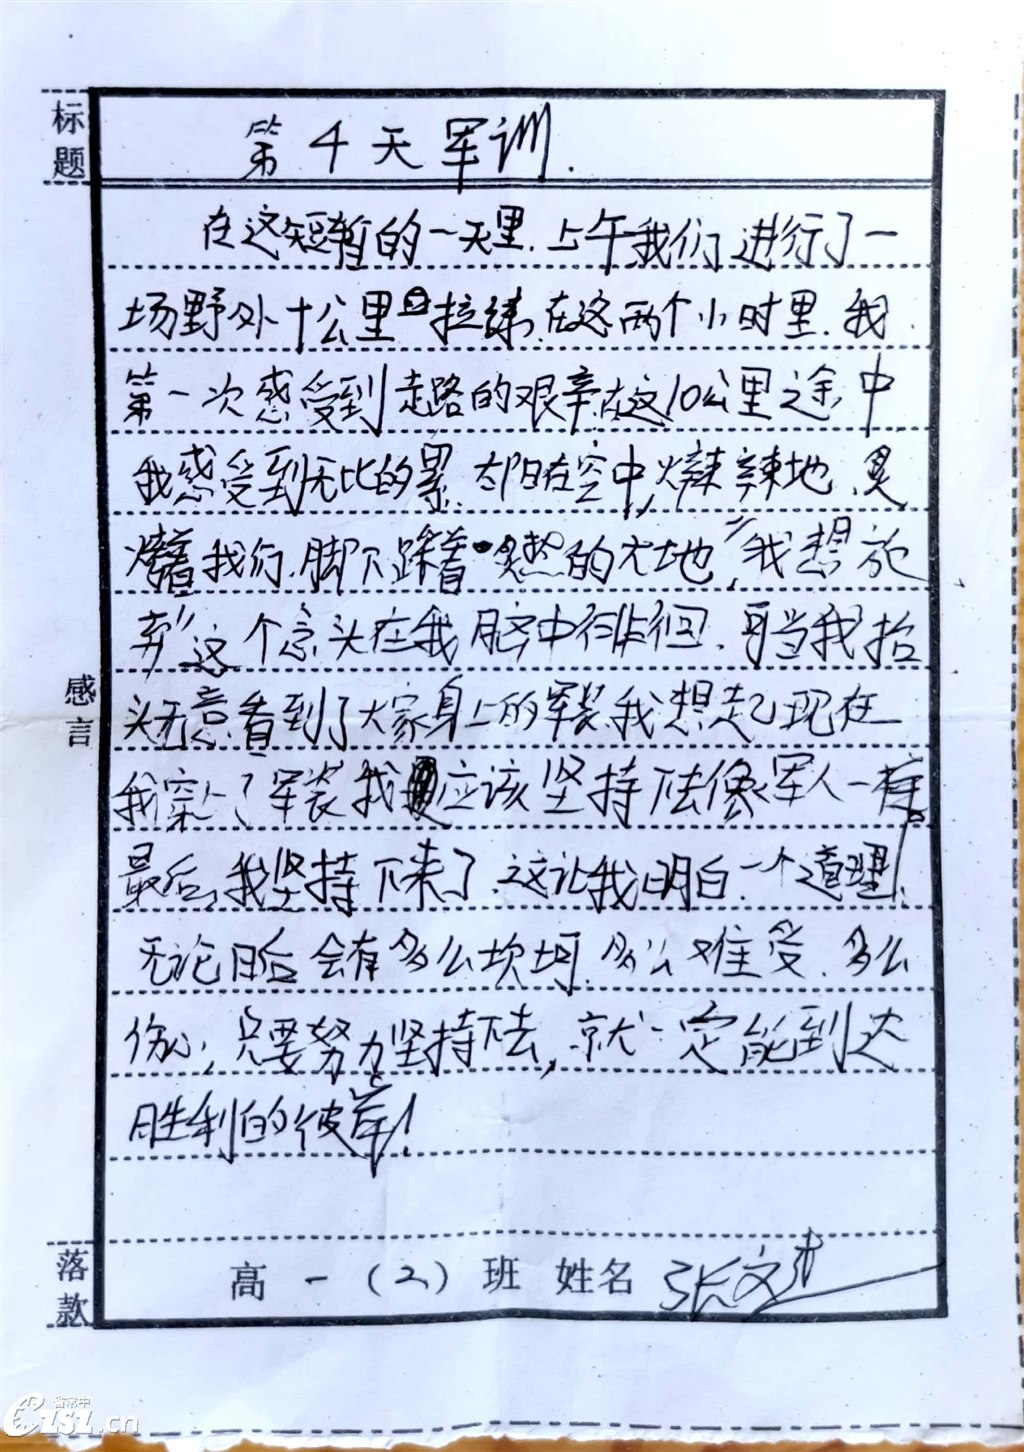 标题
第4天军训.
在这短暂的一天里.上午我们进行了一
场野外十公里拉练,在这两个小时里.我
第一次感受到走路的艰辛在这10公里之途中
我感受到无比的累,太阳在空中,火辣辣地.炙
烤着我们.脚下踩着炙热的大地,"我想放
弃"这个念头在我脑中徘徊.可当我抬
头无意看到了大家身上的军装我想起现在
我穿上了军装我应该坚持下去像军人一样。
最后,我坚持下来了.这让我明白一个道理,
无论日后会有多么坎坷.多么难受.多么
伤心,只要努力坚持下去,就一定能到达
胜利的彼岸!
感言
落款
高一(2)班 姓名 张文
省常中
.cn